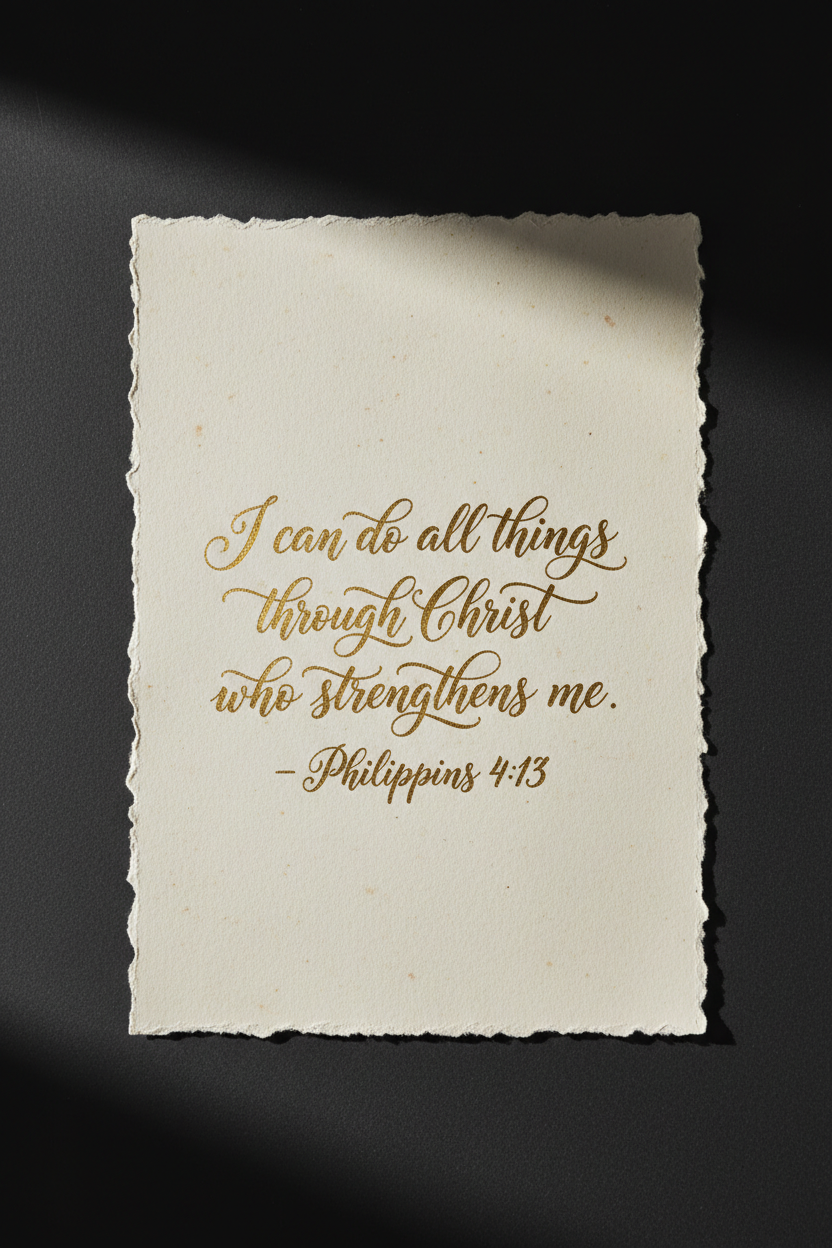 I can do all things
through Christ
who strengthens me.
– Philippins 4:13